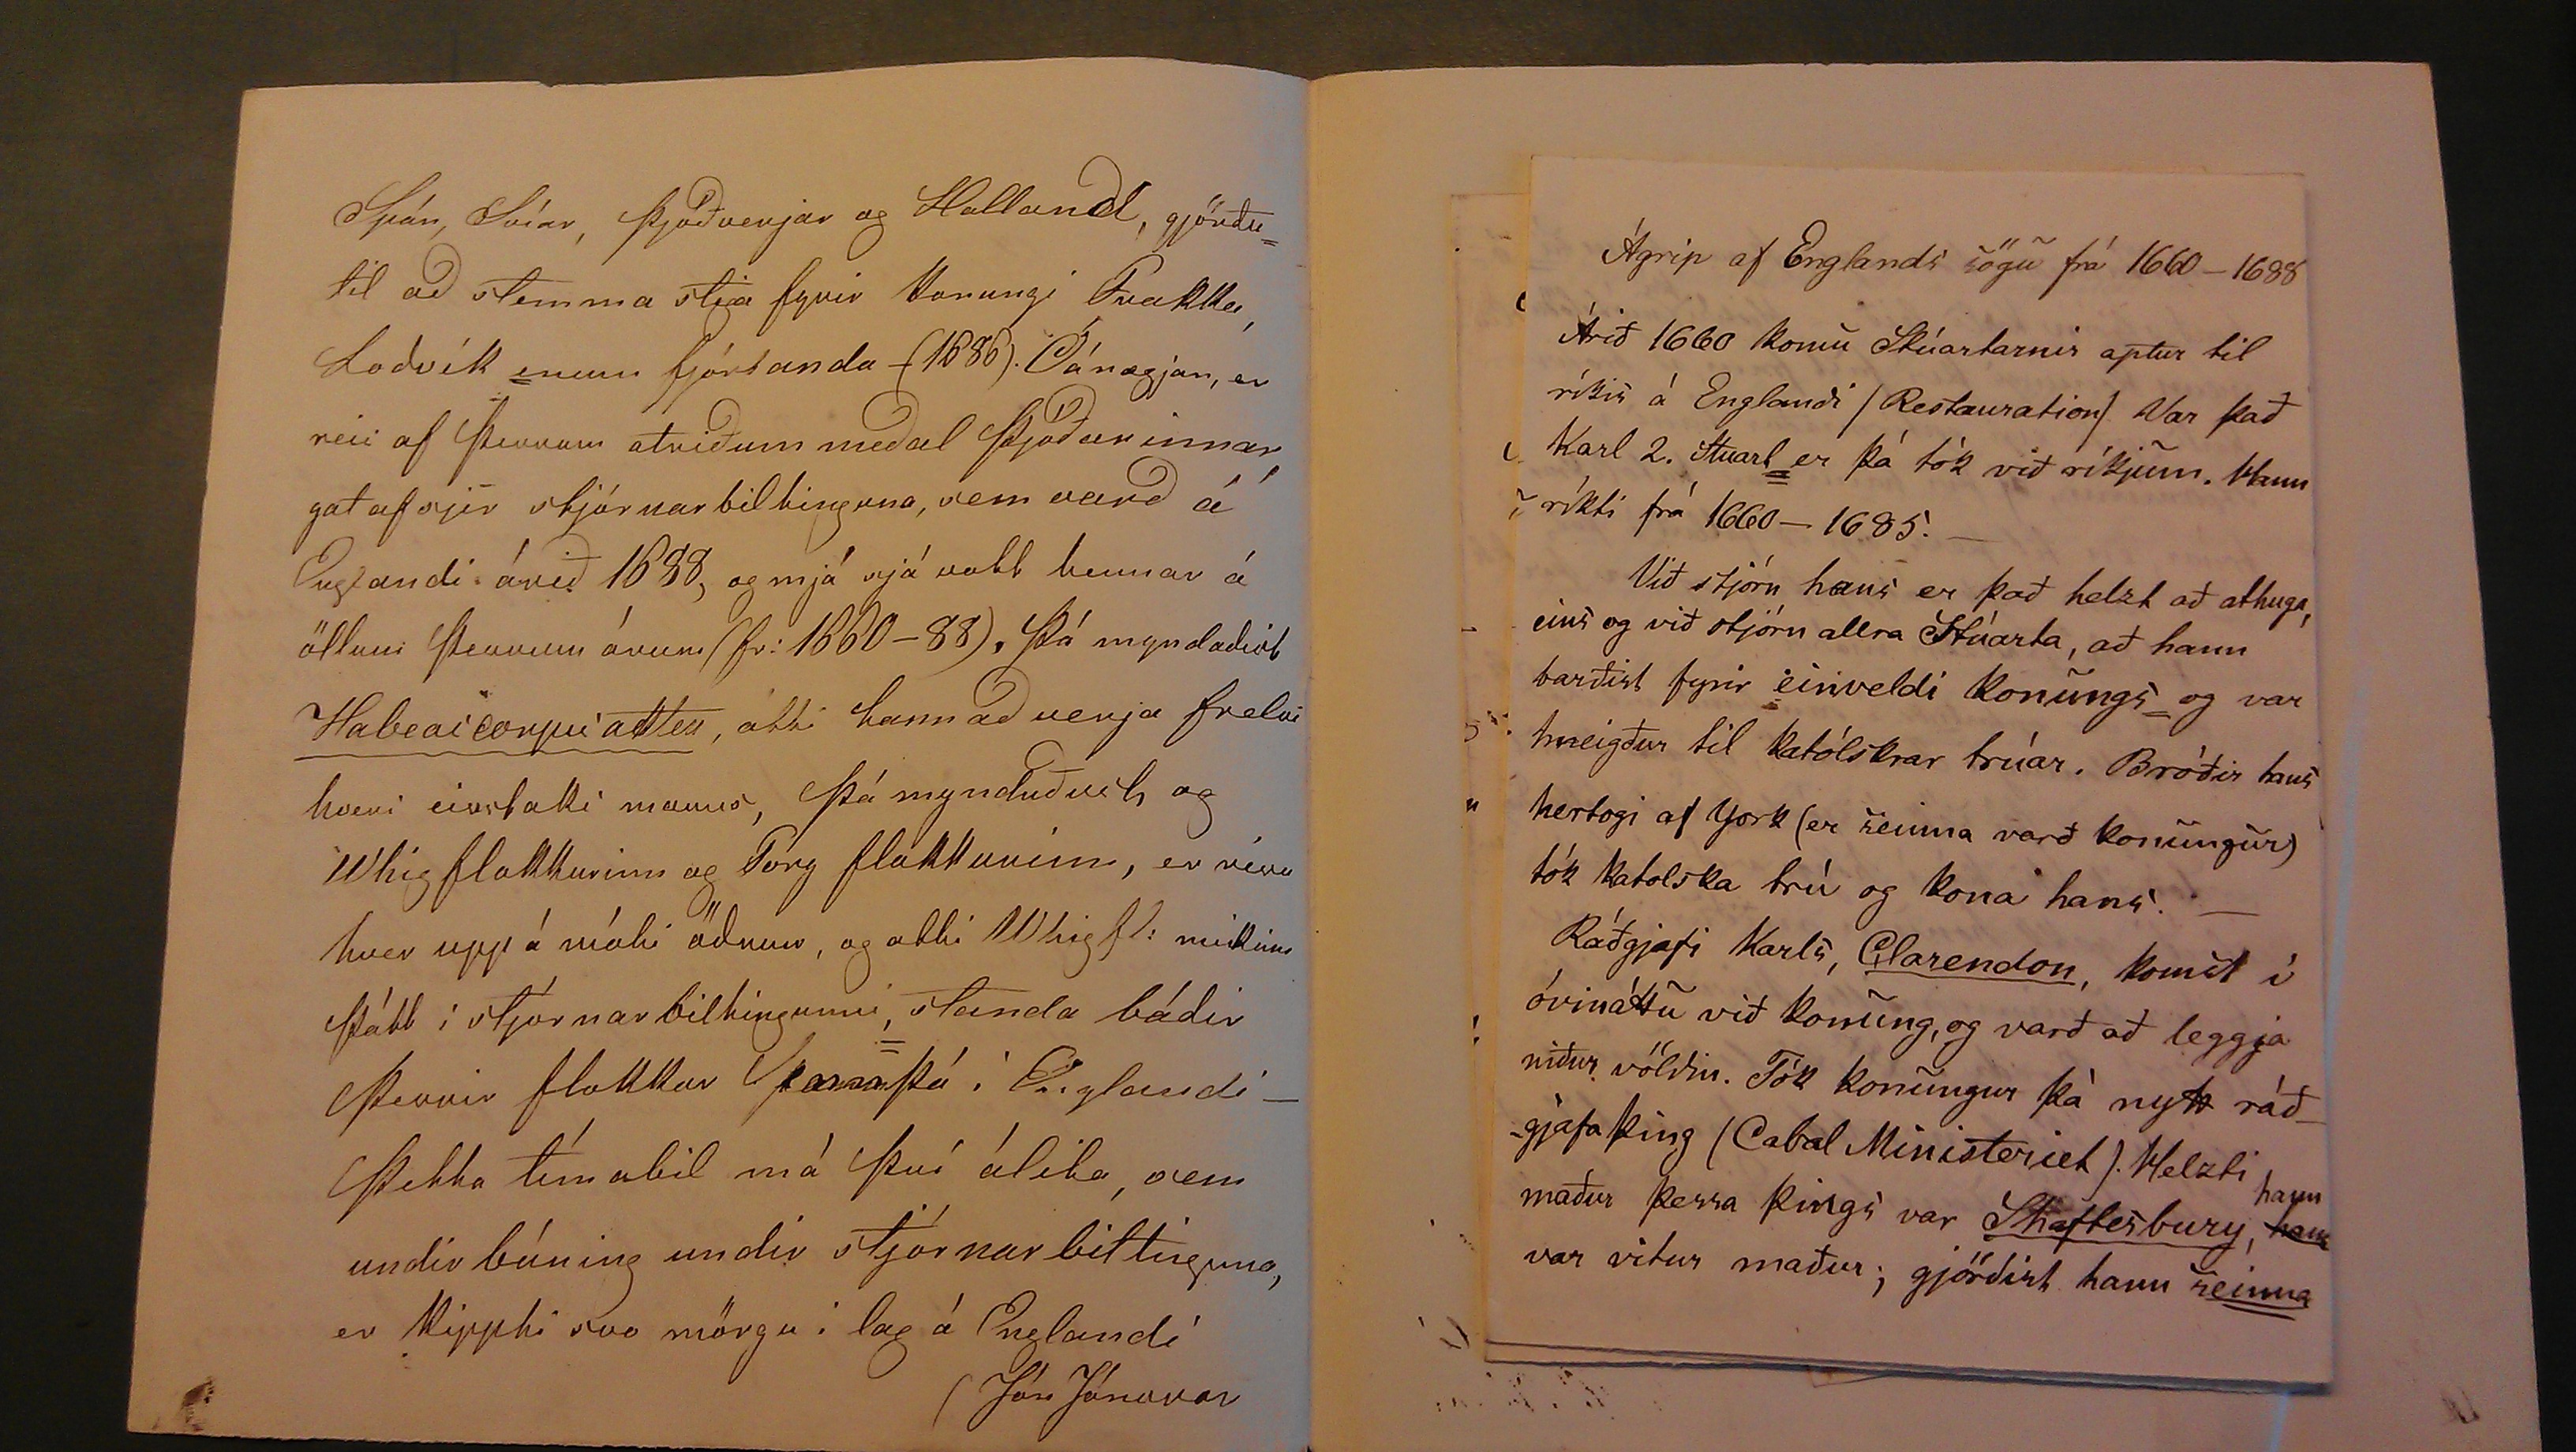 Spán, Svíar, Þjóðverjar og Holland, gjörðu=
til að stemma stiga fyrir konungi Frakka,
Loðvík enum fjórtanda - (1686). Óánægjan, er
reis af þessum atriðum meðal þjóðarinnar,
gat af sjer stjórnarbiltinguna, sem varð á
Englandi árið 1688, og má sjá vott hennar á
öllum þessum árum (fr: 1660-88). Þá myndaðist
Habeas corpus akten, átti hann að verja frelsi
hvers einstaks manns, þá mynduðust og
Whigflokkurinn og Tory flokkurinn, er risu
hver upp á móti öðrum, og átti Whig fl: mikinn
þátt i stjórnarbiltingunni, standa báðir
þessir flokkar þá i Englandi -
Þetta tímabil má því álíta, sem
undirbúning undir stjórnarbiltinguna,
er kippti svo mörgu i lag á Englandi
(Jón Jónsson
Ágrip af Englands sögu frá 1660-1688
Árið 1660 komu Stúartarnir aptur til
ríkis á Englandi (Restauration). Var það
Karl 2. Stuart er þá tók við ríkjum. Hann
ríkti frá 1660-1685. -
Við stjórn hans er það helzt að athuga,
eins og við stjórn allra Stúarta, að hann
barðist fyrir einveldi konungs og var
hneigður til katólskrar trúar. Bróðir hans
hertogi af York (er seinna varð konungur)
tók katolska trú og kona hans. -
Ráðgjafi Karls, Clarendon, komst í
óvináttu við konung, og varð að leggja
niður völdin. Tók konungur þá nytt ráð-
-gjafa þing (Cabal Ministeriet). Helzti
maður þessa þings var Shaftesbury, hann
var vitur maður; gjörðist hann seinna